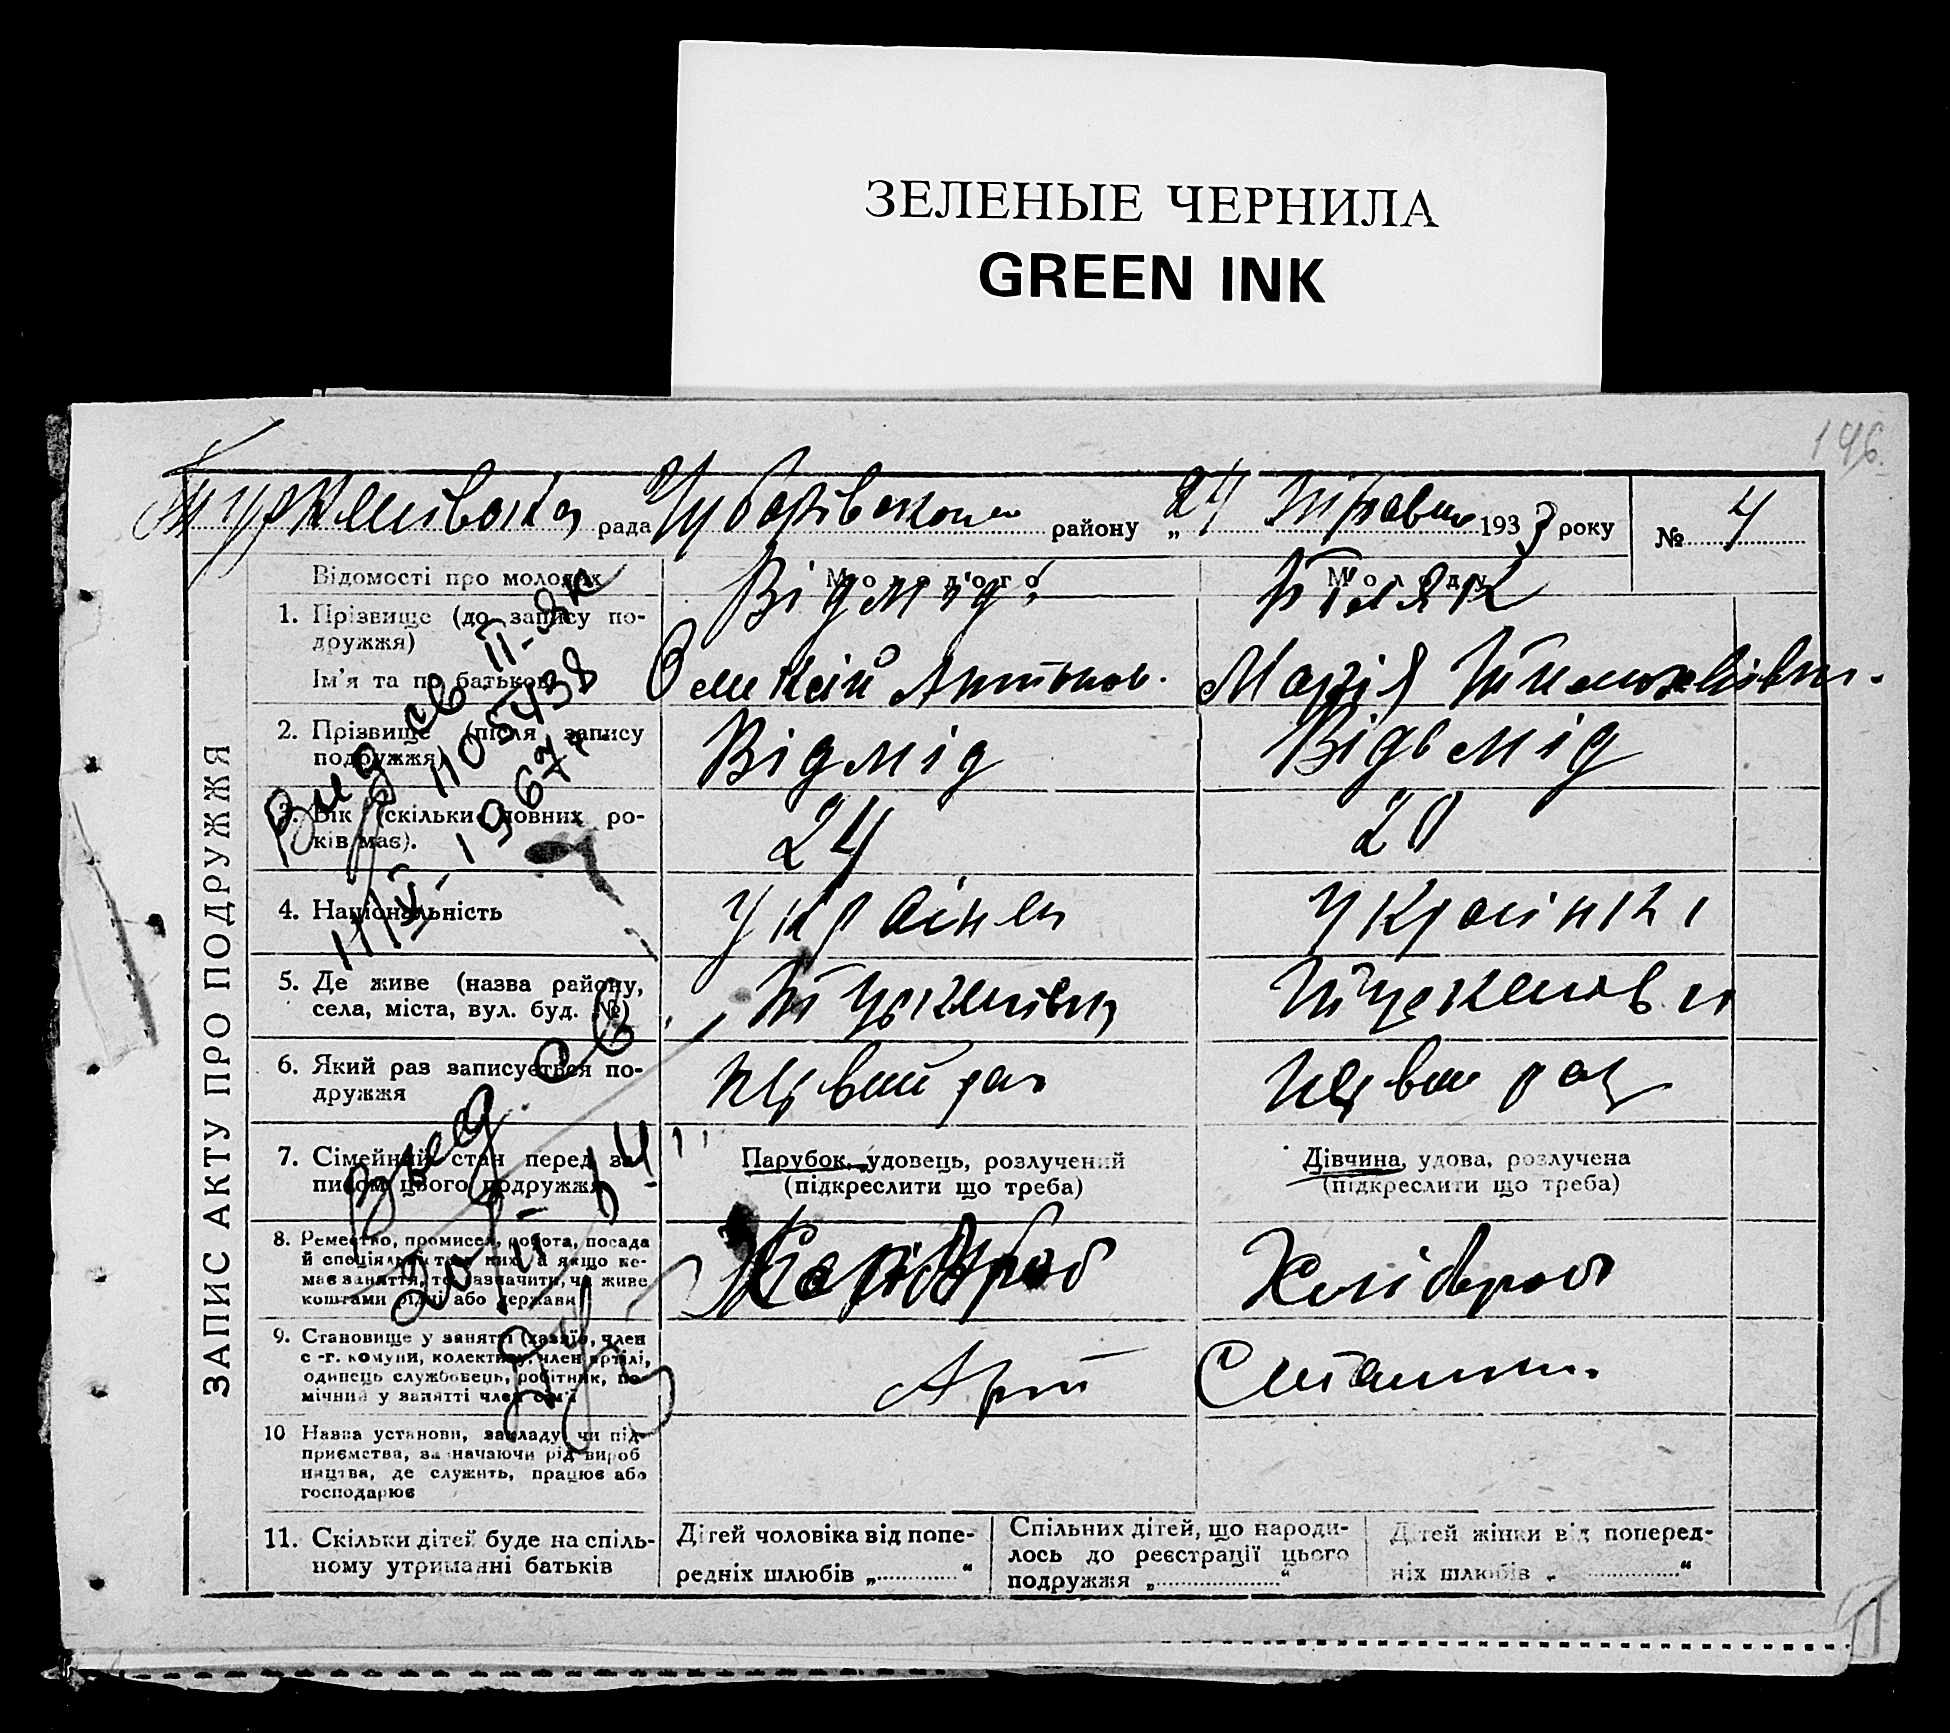 ЗЕЛЕНЫЕ ЧЕРНИЛА
GREEN INK
196.
рада Чубарівського району „24 травня 1933 року № 4
ЗАПИС АКТУ ПРО ПОДРУЖЖЯ
Відомості про молодих Молодого Молодої
1. Прізвище (до запису по-
дружжя) Відмідь
Ім'я та по батькові Олексій Антонов. Марія
2. Прізвище (після запису
подружжя) Відмід Відьмід
3. Вік (скільки повних ро-
ків має). 24 20
4. Національність Українец Українка
5. Де живе (назва району,
села, міста, вул. буд. №)
6. Який раз записується по-
дружжя первий раз первий раз
7. Сімейний стан перед за-
писом цього подружжя
Парубок, удовець, розлучений
(підкреслити що треба)
Дівчина, удова, розлучена
(підкреслити що треба)
8. Ремество, промисел, робота, посада
й спеціяльність в них, а якщо не-
має заняття, то зазначити, чи живе
коштами рідні або держави Хлібороб Хлібороб
9. Становище у занятті (хазяїн, член
с-г. комуни, колективу, член артілі,
одинець службовець, робітник, по-
мічний у занятті член сім'ї
10 Назва установи, закладу чи під-
приємства, зазначаючи рід вироб
ництва, де служить, працює або
господарює
11. Скільки дітей буде на спіль-
ному утриманні батьків
Дітей чоловіка від попе-
редніх шлюбів „ “
Спільних дітей, що народи-
лось до реєстрації цього
подружжя „ “
Дітей жінки від поперед-
ніх шлюбів „ “